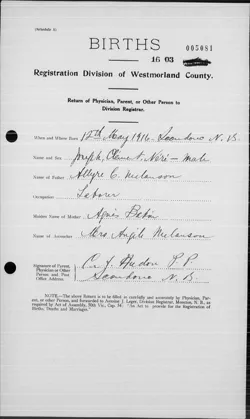 (SCHEDULE B)
BIRTHS
005081
16 03
Registration Division of Westmorland County.
Return of Physician, Parent, or Other Person to
Division Registrar.
When and Where Born 12th May 1916 Scoudouc N. B.
Name and Sex Joseph, Clement, Neri - male
Name of Father Allyre C. Melanson
Occupation Laborer
Maiden Name of Mother Agnès
Name of Accoucher Mrs Melanson
Signature of Parent,
Physician or Other
Person, and Post
Office Address. P. P.
Scoudouc N. B.
N. B.—The above Return is to be filled in carefully and accurately by Physician, Parent,
or other Person, and forwarded to Antoine J. Leger, Division Registrar, Moncton, N. B., as
required by Act of Assembly, 50th Vic., Cap. : "An Act to provide for the Registration of
Births, Deaths and Marriages."